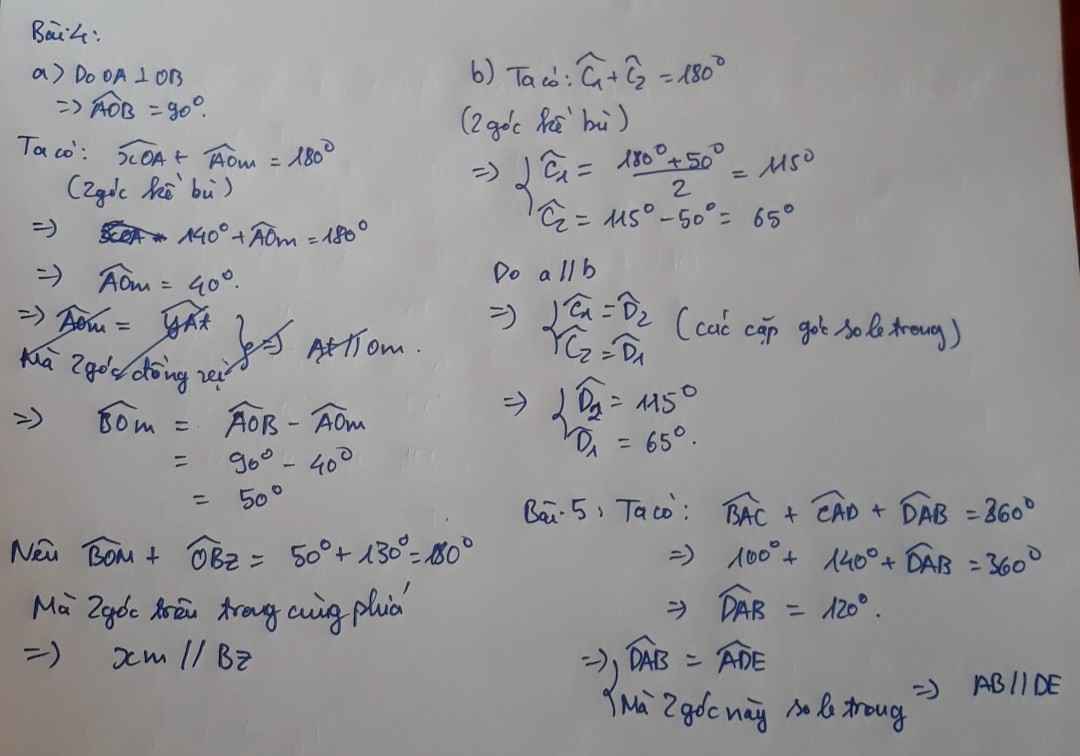 Bài 4:
a) Do OA ⊥ OB
=> AÔB = 90°.
Ta có: xÔA + AÔm = 180°
(2 góc kề bù)
=> 140° + AÔm = 180°
=> AÔm = 40°.
=> AÔm = yAt
Mà 2 góc đồng vị } => At // Om.
=> BÔm = AÔB - AÔm
= 90° - 40°
= 50°
Nên BÔM + OBz = 50° + 130° = 180°
Mà 2 góc trên trong cùng phía
=> xm // Bz
b) Ta có: Ĉ1 + Ĉ2 = 180°
(2 góc kề bù)
=> { Ĉ1 = (180° + 50°)/2 = 115°
Ĉ2 = 115° - 50° = 65°
Do a // b
=> { Ĉ1 = D̂2
Ĉ2 = D̂1 (các cặp góc so le trong)
=> { D̂2 = 115°
D̂1 = 65°.
Bài 5: Ta có: BÂC + CÂD + DÂB = 360°
=> 100° + 140° + DÂB = 360°
=> DÂB = 120°.
=> { DÂB = AD̂E
Mà 2 góc này so le trong => AB // DE